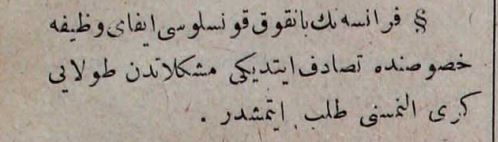 § فرانسه‌نك بانقوق قونسلوسی ایفای وظیفه
خصوصنده تصادف ایتدیکی مشکلاتدن طولایی
کری النمسنی طلب ایتمشدر .